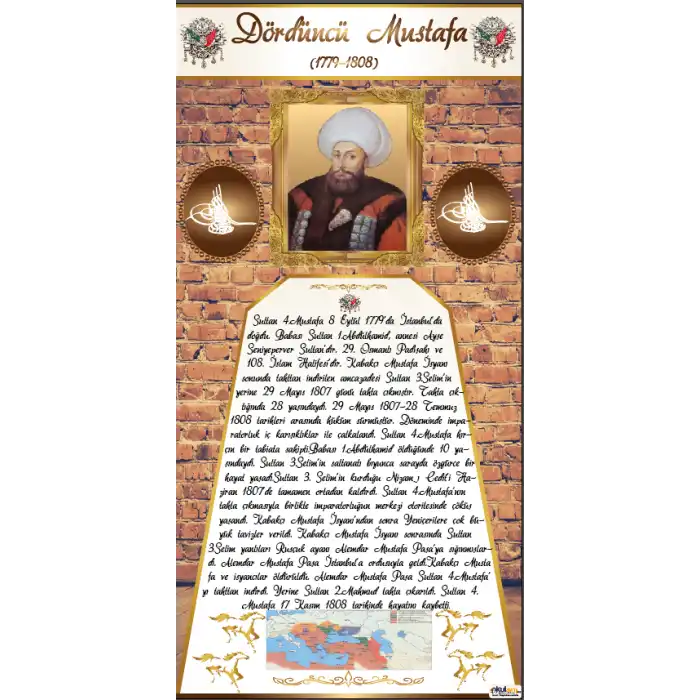 Dördüncü Mustafa
(1779-1808)
Sultan 4.Mustafa 8 Eylül 1779'da İstanbul'da
doğdu. Babası Sultan 1.Abdülhamid, annesi Ayşe
Seniyeperver Sultan'dır. 29. Osmanlı Padişahı ve
108. İslam Halifesi'dir. Kabakçı Mustafa İsyanı
sonunda tahttan indirilen amcazadesi Sultan 3.Selim'in
yerine 29 Mayıs 1807 günü tahta çıkmıştır. Tahta çık-
tığında 28 yaşındaydı. 29 Mayıs 1807-28 Temmuz
1808 tarihleri arasında hüküm sürmüştür. Döneminde impa-
ratorluk iç karışıklıklar ile çalkalandı. Sultan 4.Mustafa hır-
çın bir tabiata sahipti.Babası 1.Abdülhamid öldüğünde 10 ya-
şındaydı. Sultan 3.Selim'in saltanatı boyunca sarayda özgürce bir
hayat yaşadı.Sultan 3. Selim'in kurduğu Nizam-ı Cedit'i Ha-
ziran 1807'de tamamen ortadan kaldırdı. Sultan 4.Mustafa'nın
tahta çıkmasıyla birlikte imparatorluğun merkezi otoritesinde çöküş
yaşandı. Kabakçı Mustafa İsyanı'ndan sonra Yeniçerilere çok bü-
yük tavizler verildi. Kabakçı Mustafa İsyanı sonrasında Sultan
3.Selim yanlıları Rusçuk ayanı Alemdar Mustafa Paşa'ya sığınmışlar-
dı. Alemdar Mustafa Paşa İstanbul'a ordusuyla geldi.Kabakçı Musta
fa ve isyancılar öldürüldü. Alemdar Mustafa Paşa Sultan 4.Mustafa'
yı tahttan indirdi. Yerine Sultan 2.Mahmud tahta çıkarıldı. Sultan 4.
Mustafa 17 Kasım 1808 tarihinde hayatını kaybetti.